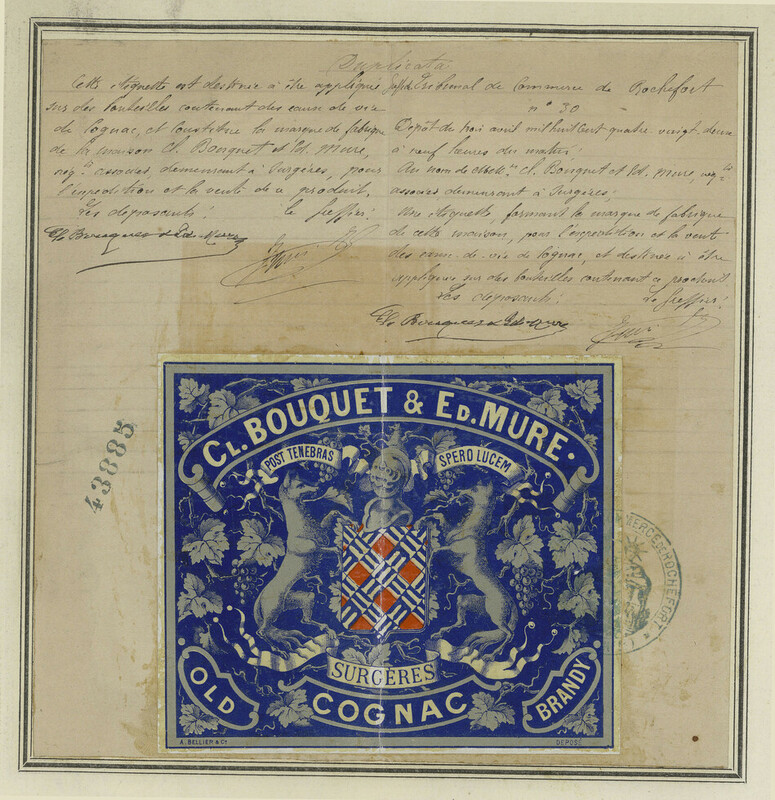 Duplicata
Cette étiquette est destinée à être appliquée
sur des bouteilles contenant des eaux de vie
de Cognac, et constitue la marque de fabrique
de la maison Cl. Bouquet et Ed. Mure,
nég.ts associés, demeurant à Surgères, pour
l'expédition et la vente de ce produit.
Les déposants: le greffier:
Cl. Bouquet & Ed. Mure
Tribunal de Commerce de Rochefort
n° 30
Dépôt du trois avril mil huit cent quatre vingt-
à neuf heures du matin:
Au nom de Cl. Bouquet et Ed. Mure, nég.ts
associés demeurant à Surgères;
Une étiquette, formant la marque de fabrique
de cette maison, pour l'expédition et la vente
des eaux-de-vie de Cognac, et destinée à être
appliquée sur des bouteilles contenant ce produit
Les déposants: Le greffier:
Cl. Bouquet & Ed. Mure
43885
CL. BOUQUET & ED. MURE.
POST TENEBRAS SPERO LUCEM
SURGÈRES
OLD COGNAC BRANDY
A. BELLIER & Cie DÉPOSÉ
MERCE DE ROCHEFORT